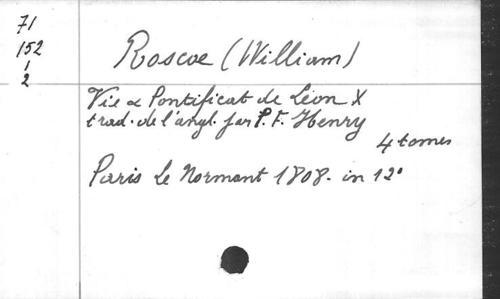 71
152
1
2
Roscoe (William)
Vie & Pontificat de Léon X
trad. de l'angl. par P. F. Henry
4 tomes
Paris Le Normant 1808. in 12°